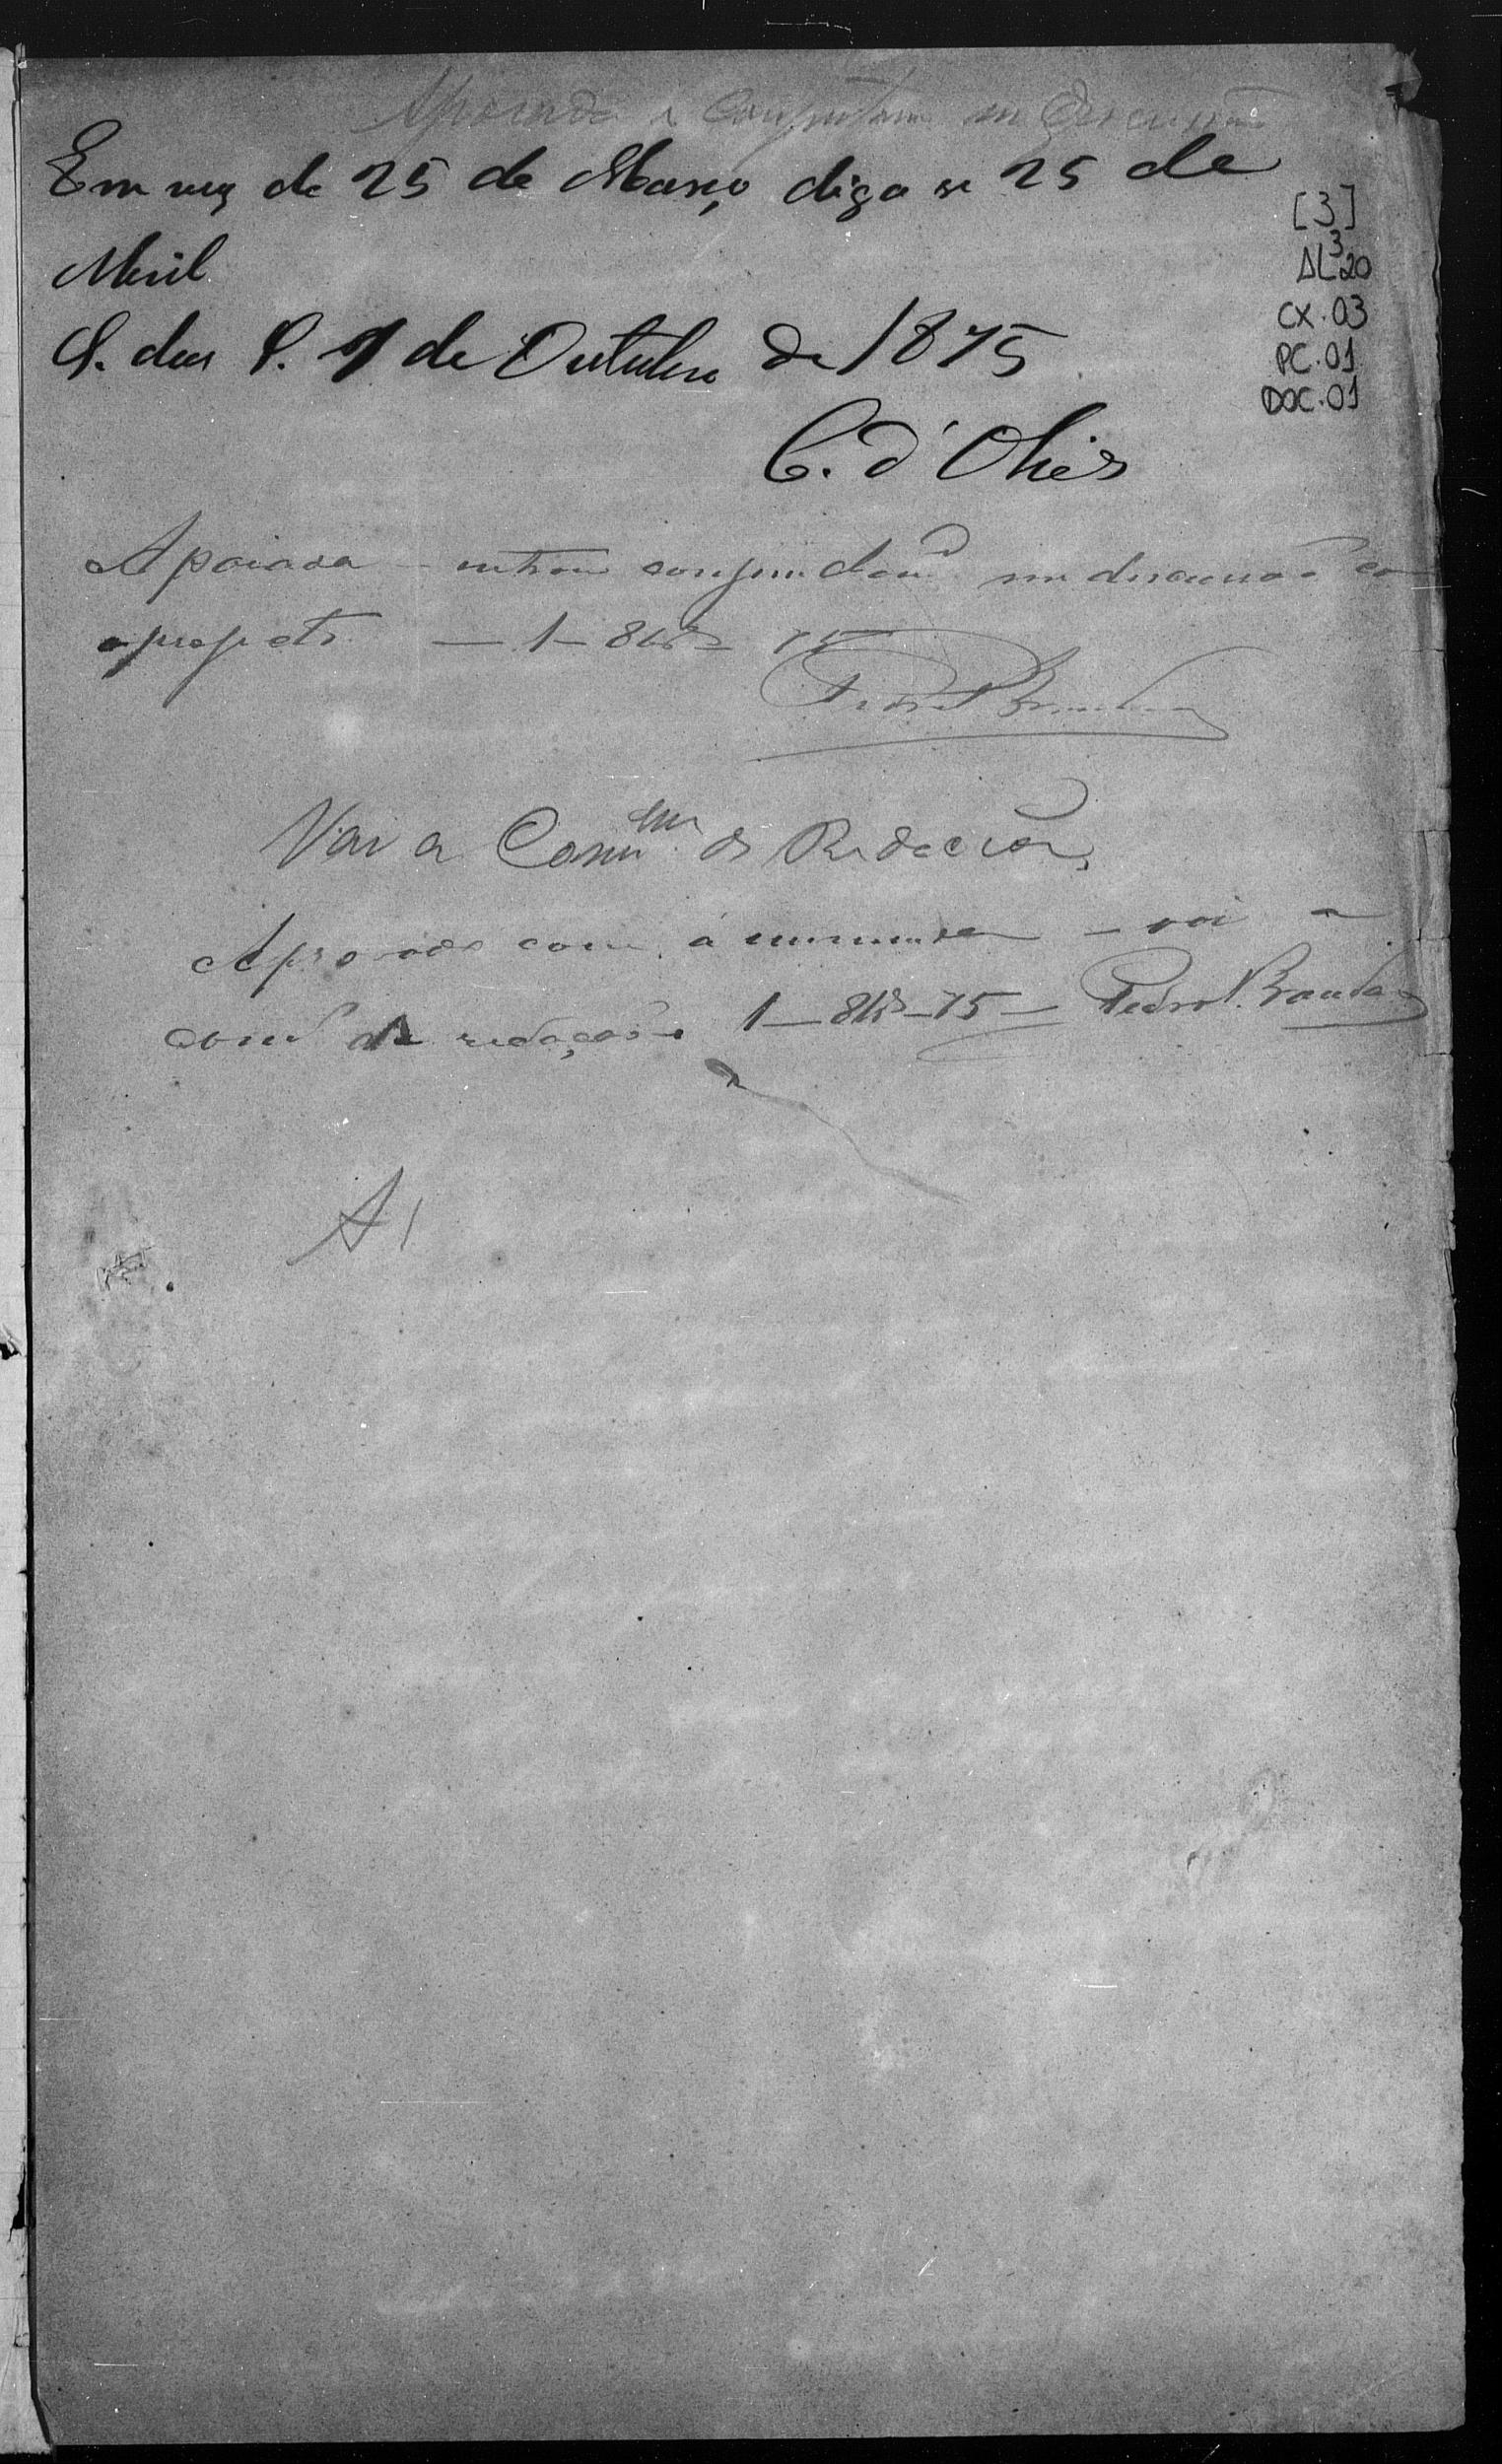 Apoiada e conjuntam em discussão
Em vez de 25 de Março diga se 25 de
Abril
S. das S. 1 de Outubro de 1875
C. d'Olivr
[3]
AL 3 20
CX.03
PC.01
DOC.01
Apoiada - entrou conjunctam em discussão co
o projecto — 1 — 8br - 75
Pedro Brandão
Vai a Comm de Redacção
Aprovado com a emmenda - vai a
com de redação 1 — 8br — 75 — Pedro V. Brandão
A